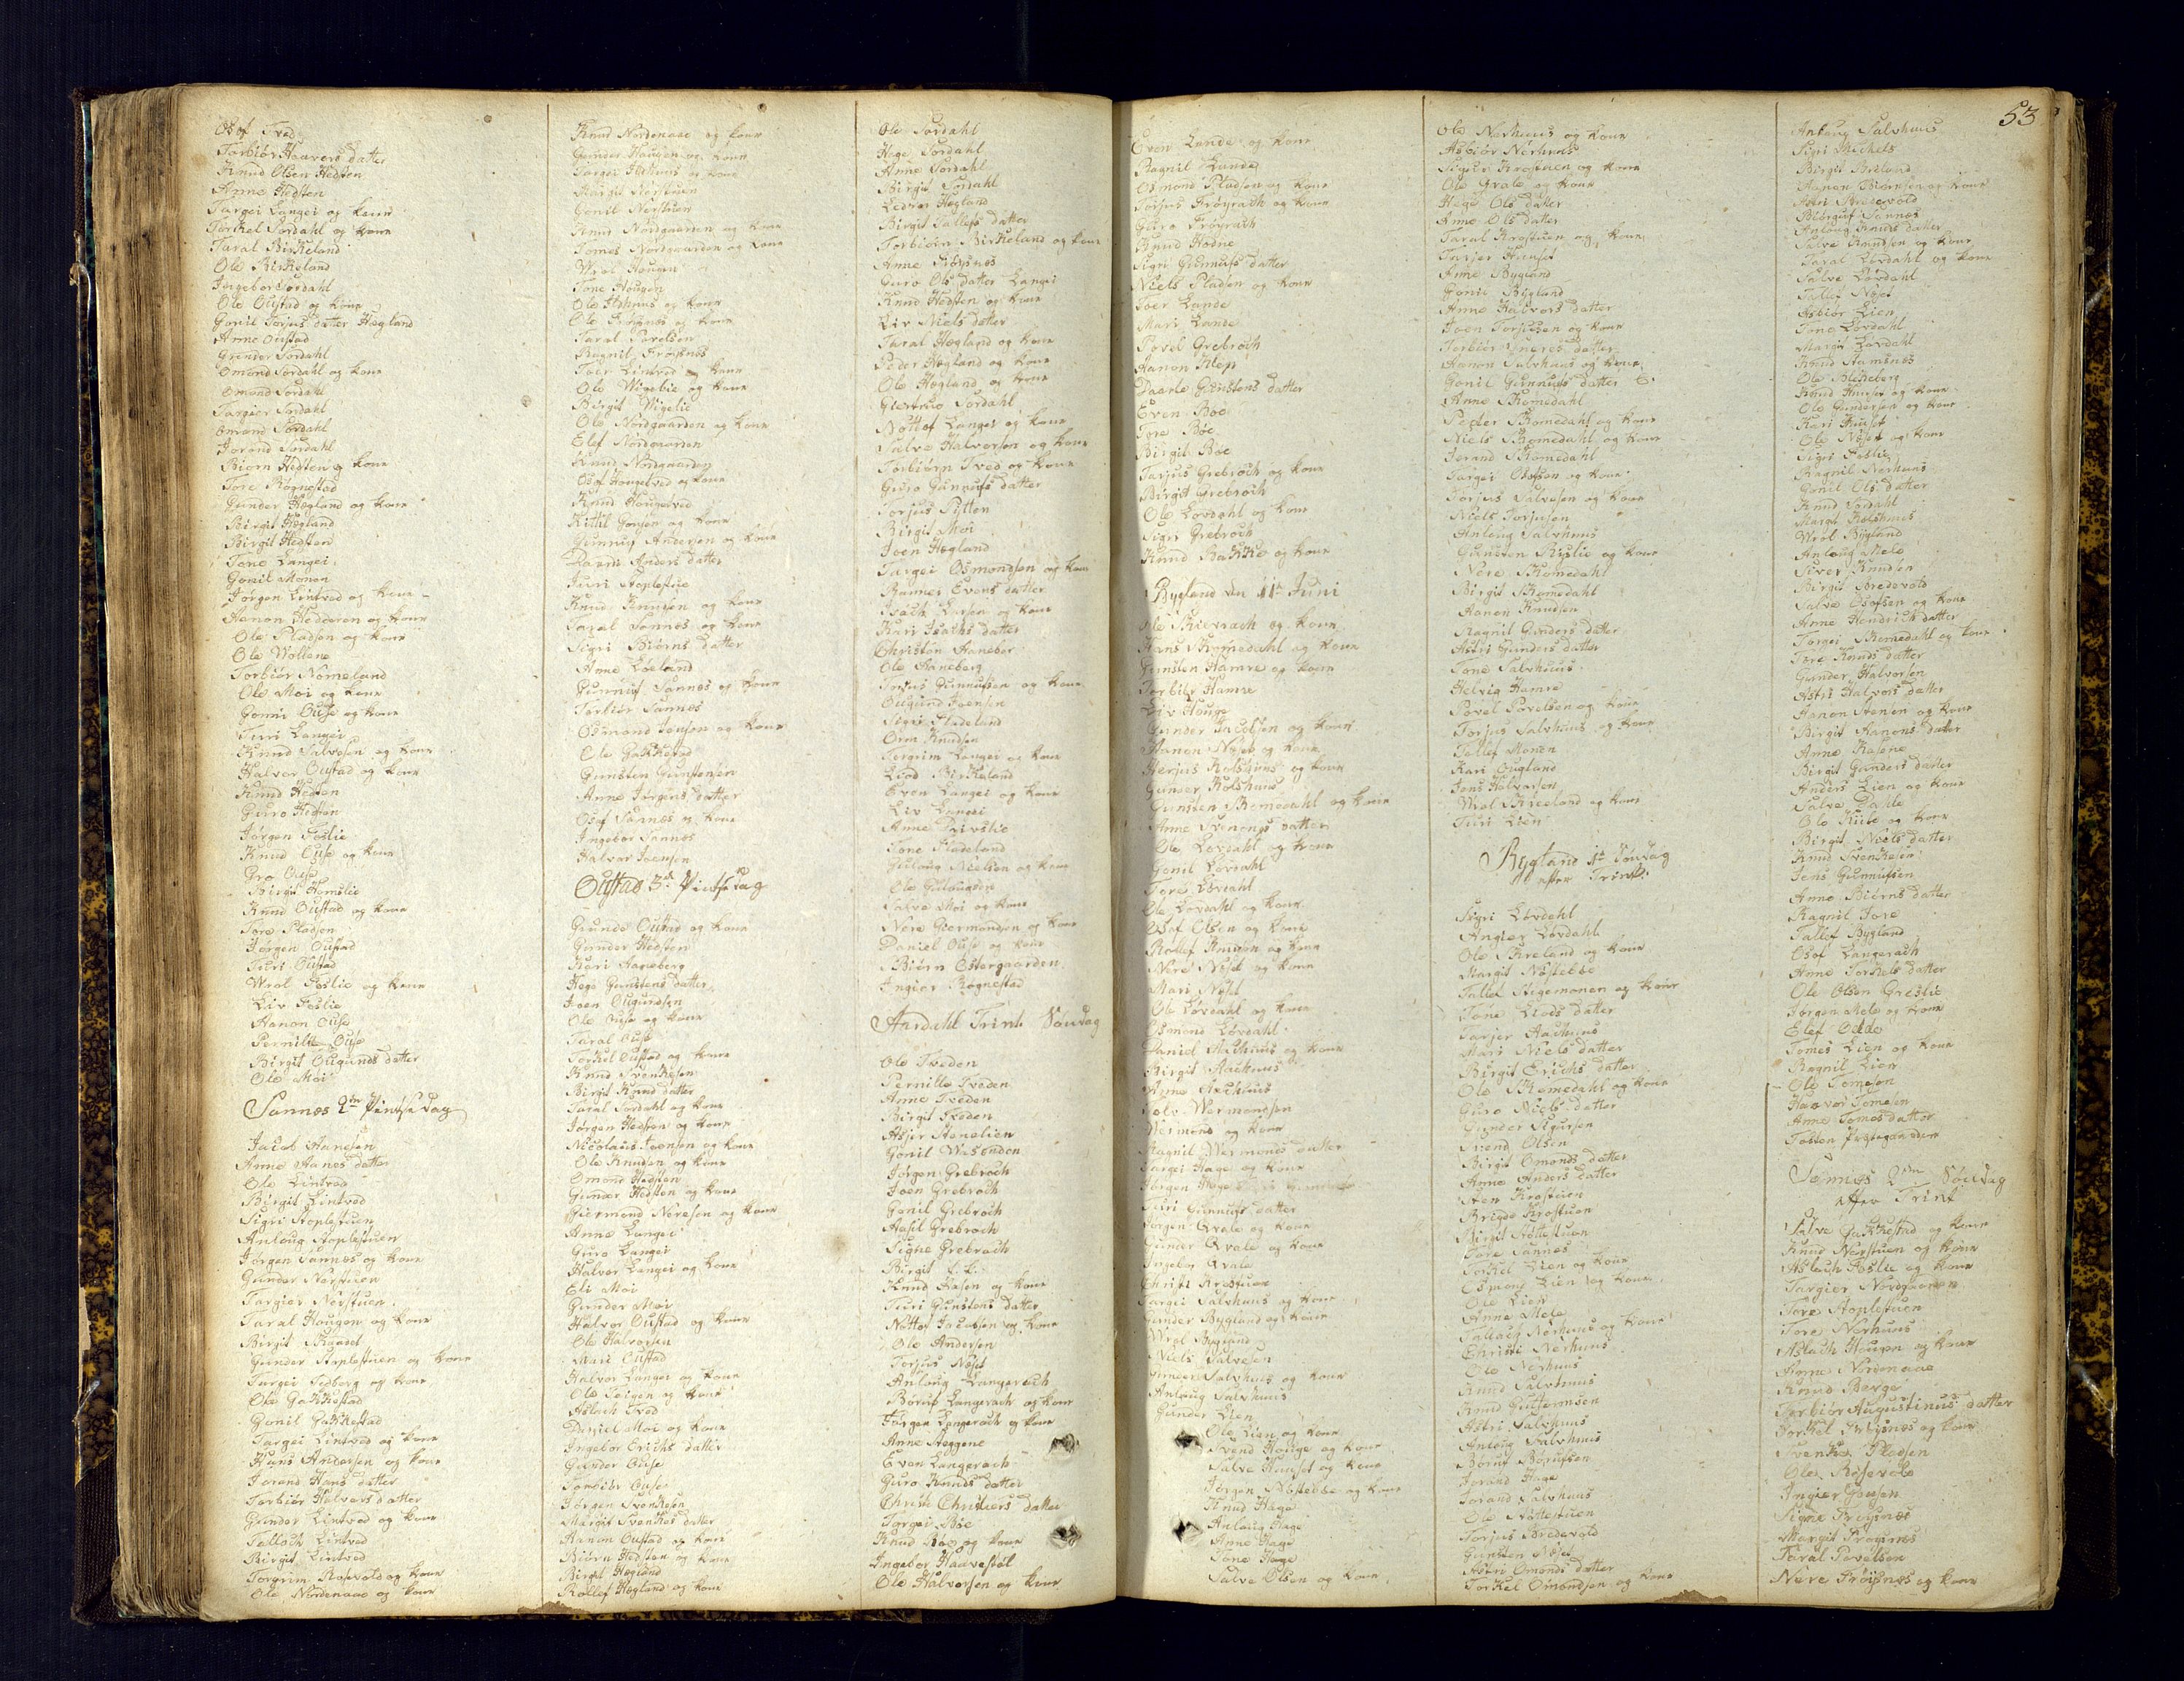 Osof Tved
Torbiør Haavors datter
Knud Olsen Hedsten
Anne Hedsten
Targei Langei og kone
Torkel Sordahl og kone
Taral Birkeland
Ole Birkeland
Ingebor Sordahl
Ole Oustad og kone
Gonil Torjus datter Hægland
Anne Oustad
Gunder Sordahl
Omond Sordahl og kone
Omond Sordahl
Targier Sordahl
Omond Sordahl
Jorand Sordahl
Biørn Hedsten og kone
Tore Røgnestad
Gunder Hægland og kone
Birgit Hægland
Birgit Hedsten
Tone Langei
Gonil Monen
Jørgen Lintved og kone
Aanon Hedderen og kone
Ole Pladsen og kone
Ole Wollene
Torbiør Nomeland
Ole Moi og kone
Gonni Ouse og kone
Turi Langei
Knud Salvesen og kone
Halvor Oustad og kone
Knud Hedsten
Guro Hedsten
Jørgen Foslie
Knud Ouse og kone
Gro Ouse
Birgit Homslie
Knud Oustad og kone
Tore Pladsen
Jørgen Oustad
Turi Oustad
Wrol Foslie og kone
Liv Foslie
Aanon Ouse
Pernille Ouse
Birgit Ougunds datter
Ole Moi
Sannes 2den Pintse dag
Jacob Hansen
Anne Hanes datter
Ole Lintved
Birgit Lintved
Sigri Stoplestuen
Anlaug Stoplestuen
Jørgen Sannes og kone
Gunder Nerstuen
Targier Nerstuen
Taral Hougen og kone
Birgit
Gunder Stoplestuen og kone
Targei Tedborg og kone
Ole Gakkestad
Gonil Gakkestad
Targei Lintved og kone
Hans Andersen og kone
Jorand Hans datter
Torbiør Halvors datter
Gunder Lintved og kone
Tallach Lintved
Birgit Lintved
Torgrim Rosevold og kone
Ole Nordenaae og kone
Knud Nordenaae og kone
Gunder Hougen og kone
Torger og kone
Margit Nerstuen
Gonil Nerstuen
Knud Nordgaarden og kone
Tomes Nordgaarden og kone
Wrol Hougen
Tone Hougen
Ole og kone
Ole Frøysnes og kone
Taral Povelsen
Ragnil Frøysnes
Toer Lintved og kone
Ole Wigelie og kone
Birgit Wigelie
Ole Nordgaarden og kone
Elef Nordgaarden
Knud Nordgaarden
Osof Hougetved og kone
Knud Hougetved
Kittil og kone
Gunnuf Andersen og kone
Anders datter
Turi
Knud Knudsen og kone
Taral Sannes og kone
Sigri Biørns datter
Anne Løeland
Gunnuf Sannes og kone
Torbiør Sannes
Osmond Jensen og kone
Ole Gakkestad
Gunsten Gunstensen
Anne Jørgens datter
Osof Sannes og kone
Ingebor Sannes
Halvor Joensen
Oustad 3die Pintse dag
Gunde Oustad og kone
Gunder Hedsten
Kari Haneberg
Hege Gunstens datter
Joen Ougundsen
Ole Ouse og kone
Taral Ouse
Torkel Oustad og kone
Knud Svenkesen
Birgit Knud datter
Taral Sordahl og kone
Jørgen Hedsten og kone
Nicolaus Joensen og kone
Ole Knudsen og kone
Omond Hedsten
Gunder Hedsten og kone
Giermond Neresen og kone
Anne Langei
Guro Langei
Halvor Langei og kone
Eli Moi
Gunder Moi
Halvor Oustad og kone
Ole Halvorsen
Mari Oustad
Halvor Langei og kone
Ole og kone
Aslach Tved
Daniel Moi og kone
Ingebor Erichs datter
Gunder Ouse
Torbiør Ouse
Jørgen Svenkesen
Margit Svenkes datter
Aanon Oustad og kone
Biørn Hedsten og kone
Birgit Hægland
Rollef Hægland og kone
Ole Sordahl
Hege Sordahl
Anne Sordahl
Birgit Sordahl
Ledvor Hægland
Birgit Tallefs datter
Torbiørn Birkeland og kone
Anne Frøysnes
Guro Ols datter Langei
Knud Hedsten og kone
Liv Niels datter
Taral Hægland og kone
Peder Hægland og kone
Ole Hægland og kone
Giertrud Sordahl
Nottof Langei og kone
Salve Halvorsen og kone
Torbiørn Tved og kone
Guro Gunnufs datter
Torjus Sytten
Birgit Moi
Joen Hægland
Targei Osmondsen og kone
Ranne Evens datter
Isach Larsen og kone
Kari Isachs datter
Christen Haneber
Ole Haneberg
Torjus Gunnufsen og kone
Ougund Joensen
Sigri Fladeland
Orm Knudsen
Torgrim Langei og kone
Liød Birkeland
Even Langei og kone
Liv Langei
Anne
Tone Fladeland
Gulaug Nielsen og kone
Ole
Salve Moi og kone
Nere Giermondsen og kone
Daniel Ouse og kone
Biørn Ostergaarden
Ingier Røgnestad
Aardahl Trint. Søndag
Ole Tveden
Pernille Tveden
Anne Tveden
Birgit Tveden
Asjer Stenelien
Gonil Wesenden
Jørgen Grebroch
Joen Grebroch
Gonil Grebroch
Aasil Grebroch
Signe Grebroch
Birgit
Knud Aasen og kone
Turi Gunstens datter
Nottov Jacobsen og kone
Ole Andersen
Torjus Nøset
Anlaug Langerach
Boruf Langerach og kone
Jørgen Langerach og kone
Anne Steggene
Even Langerach
Guro Knuds datter
Christi Christens datter
Torgei Bøe
Knud Bøe og kone
Ingebor Haavestøl
Ole Halvorsen og kone
53
Even Lande og kone
Ragnil Lande
Osmond Pladsen og kone
Torjus Frøyrach og kone
Guro Frøyrach
Knud Hodne
Sigri Gunnufs datter
Niels Pladsen og kone
Toer Lande
Mari Lande
Povel Grebroch
Aanon Klep
Daarte Gunstens datter
Even Bøe
Tore Bøe
Birgit Bøe
Tarjus Grebroch og kone
Birgit Grebroch
Ole Lovdahl og kone
Sigri Grebroch
Knud Bakke og kone
Bygland den 11te Juni
Ole Skievrach og kone
Hans Skomedahl og kone
Gunsten Hamre og kone
Torbiør Hamre
Liv Houge
Gunder Jacobsen og kone
Aanon Nøset og kone
Herjus Rolshuus og kone
Gunder Rolshuus
Gunsten Skomedahl og kone
Anne Svenungs datter
Ole Lovdahl og kone
Gonil Lovdahl
Tore Lovdahl
Ole Lovdahl og kone
Osof Olsen og kone
Rollef Knudsen og kone
Nere Nøset og kone
Mari Nøset
Ole Lovdahl og kone
Osmond Lovdahl
Daniel Aachuus og kone
Birgit Aachuus
Anne Aachuus
Wermondsen
Wermond og kone
Ragnil Wermonds datter
Targei Hage og kone
Jørgen Hage
Turi Gunnufs datter
Jørgen Qvale og kone
Gunder Qvale og kone
Ingebor Qvale
Christi Krostuen
Targei Salvhuus og kone
Gunder Bygland og kone
Wrol Bygland
Niels Salvesen
Gunder Salvhuus og kone
Anlaug Salvhuus
Gunder Lien
Ole Lien og kone
Svend Houge og kone
Salve Huuset og kone
Jørgen Nøstebbe og kone
Knud Hage
Anlaug Hage
Anne Hage
Tone Hage
Salve Olsen og kone
Ole Nerhuus og kone
Asbiør Nerhuus
Sigur Krostuen og kone
Ole Qvale og kone
Hege Ols datter
Anne Ols datter
Taral Krostuen og kone
Tarjer Huuset
Anne Bygland
Gonil Bygland
Anne Halvors datter
Joen Torjusen og kone
Torbiør datter
Aanon Salvhuus og kone
Gonil Gunnufs datter
Anne Skomedahl
Peder Skomedahl og kone
Niels Skomedahl og kone
Jorand Skomedahl
Targei Olofsen og kone
Torjus Salvesen og kone
Niels Torjusen
Anlaug Salvhuus
Gunsten og kone
Nere Skomedahl
Birgit Skomedahl
Aanon Knudsen
Ragnil Gunders datter
Astri Gunders datter
Tone Salvhuus
Helvig Hamre
Povel Povelsen og kone
Torjus Salvhuus og kone
Tallef Monen
Kari Ougland
Jens Halvorsen
Wrol og kone
Turi Lien
Bygland 1te Søndag
efter Trint.
Sigri Lovdahl
Angier Lovdahl
Ole og kone
Margit Nøstebbe
Tallef Stigemonen og kone
Tone Liods datter
Tarjer Aachuus
Mari Niels datter
Birgit Erichs datter
Ole Skomedahl og kone
Guro Niels datter
Gunder Sigursen
Svend Olsen
Birgit Omonds datter
Anne Anders datter
Sten Krostuen
Brigde Krostuen
Birgit Nottestuen
Tore Sannes
Torkel Lien og kone
Osmond Lien og kone
Ole Lien
Anne Mele
Tallach Nerhuus og kone
Christi Nerhuus
Ole Nerhuus
Knud Salvhuus
Knud Guttormsen
Astri Salvhuus
Anlaug Salvhuus
Boruf Borufsen
Jorand Hage
Jorand Salvhuus
Ole Nottestuen
Torjus Bredevold
Gunsten Nøset
Astri Omonds datter
Torkel Omondsen og kone
Anlaug Salvhuus
Sigri Michels
Birgit Breland
Aanon Biørnsen og kone
Astri Bredevold
Biorguf Sannes
Anlaug Knuds datter
Salve Knudsen og kone
Taral Lovdahl og kone
Salve Lovdahl
Tallef Nøset
Asbiør Lien
Tone Lovdahl
Margit Lovdahl
Knud
Ole
Knud Huuset og kone
Ole Gundersen og kone
Kari Huuset
Ole Nøset og kone
Sigri Foslie
Ragnil Nerhuus
Gonil Ols datter
Knud Sordahl
Margit Rolshuus
Wrol Bygland
Anlaug Mele
Siver Knudsen
Birgit Bredevold
Salve Osofsen og kone
Anne Hendrich datter
Torgei Skomedahl og kone
Tore Knuds datter
Gunder Halvorsen
Astri Halvors datter
Aanon Stensen og kone
Birgit Aanons datter
Anne
Birgit Gunders datter
Anders Lien og kone
Salve
Ole og kone
Birgit Niels datter
Knud Svenkesen
Jens Gunnufsen
Anne Biørns datter
Ragnil Jore
Tallef Bygland
Osof Langerach
Anne Torkels datter
Ole Olsen
Jørgen Mele og kone
Elef
Tomes Lien og kone
Ragnil Lien
Ole Tomesen
Haavor Tomesen
Anne Tomes datter
Tosten Prestegaarden
Sannes 2den Søndag
efter Trint
Salve Gakkestad og kone
Knud Nerstuen og kone
Aslach Foslie og kone
Targier Nordgaarden
Tore Stoplestuen
Tore Nerhuus
Aslach Hougen og kone
Anne Nordenaae
Knud Berge
Torbiør Augustinus datter
Torkel Frøysnes og kone
Svenke Pladsen
Ole Rosevold
Ingier
Signe Frøysnes
Margit Frøysnes
Taral Povelsen
Nere Frøysnes og kone